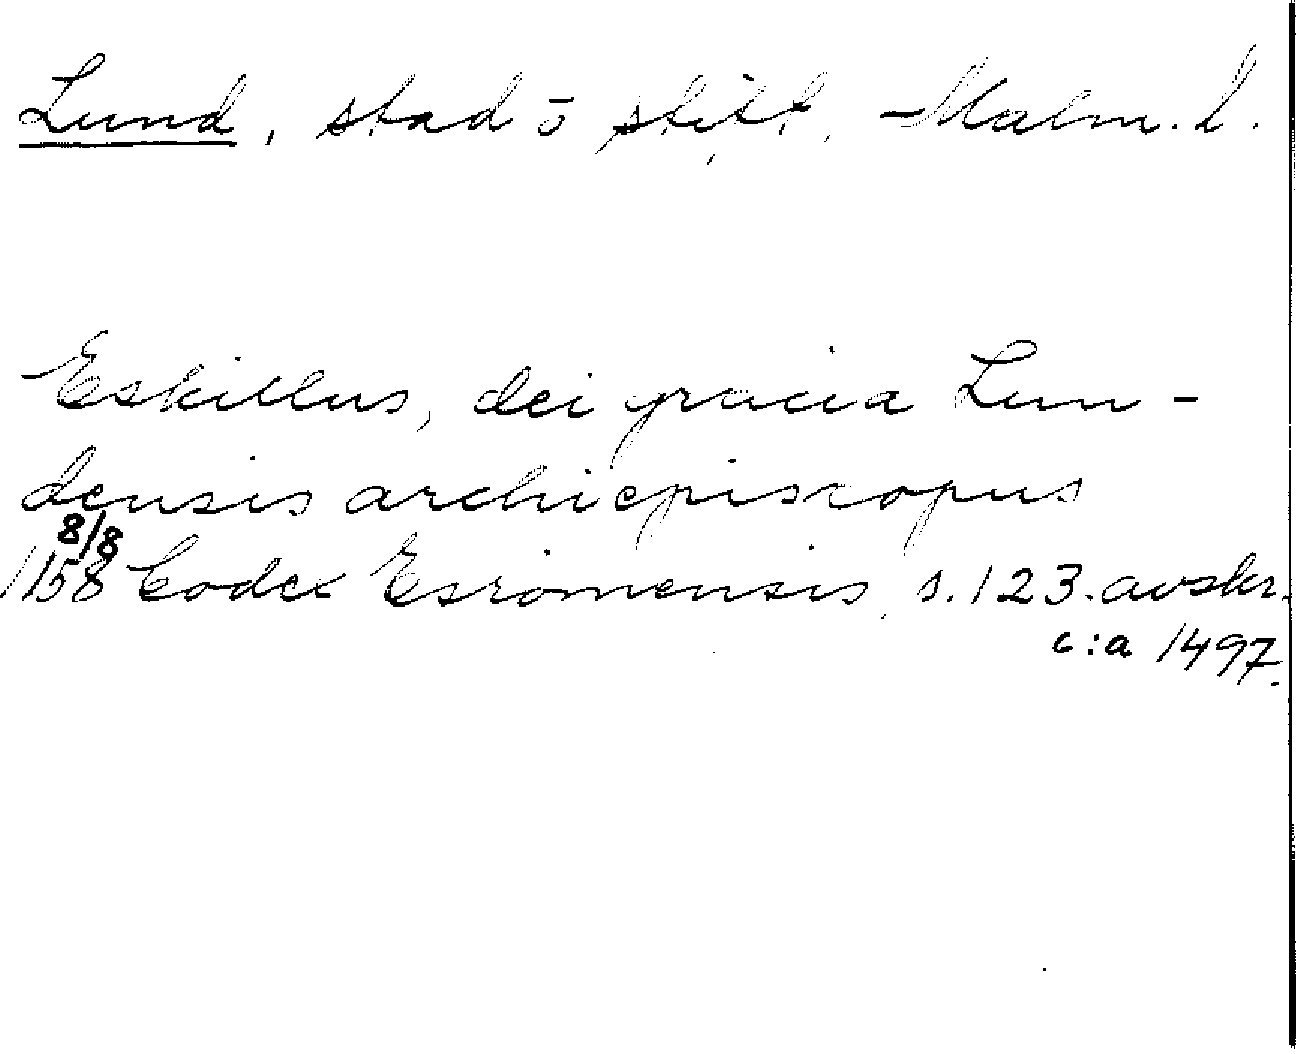 Lund, stad o stift, Malm. l.
Eskillus, dei gracia Lun-
densis archiepiscopus
8/8
1158 Codex Esromensis, s. 123. avskr.
c:a 1497.